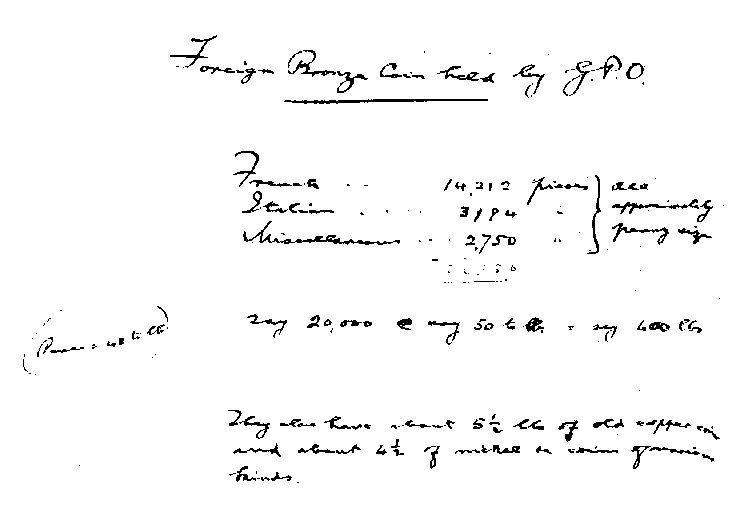 Foreign Bronze Coin held by G.P.O.
French .. 14,212 pieces } all
Italian .... 3194 " approximately
Miscellaneous .. 2,750 " penny size
Say 20,000 @ say 50 to lb. = say 400 lbs
(Pence = 48 to lb)
They also have about 5½ lbs of old copper coin
and about 4½ of nickel or coins of various
kinds.